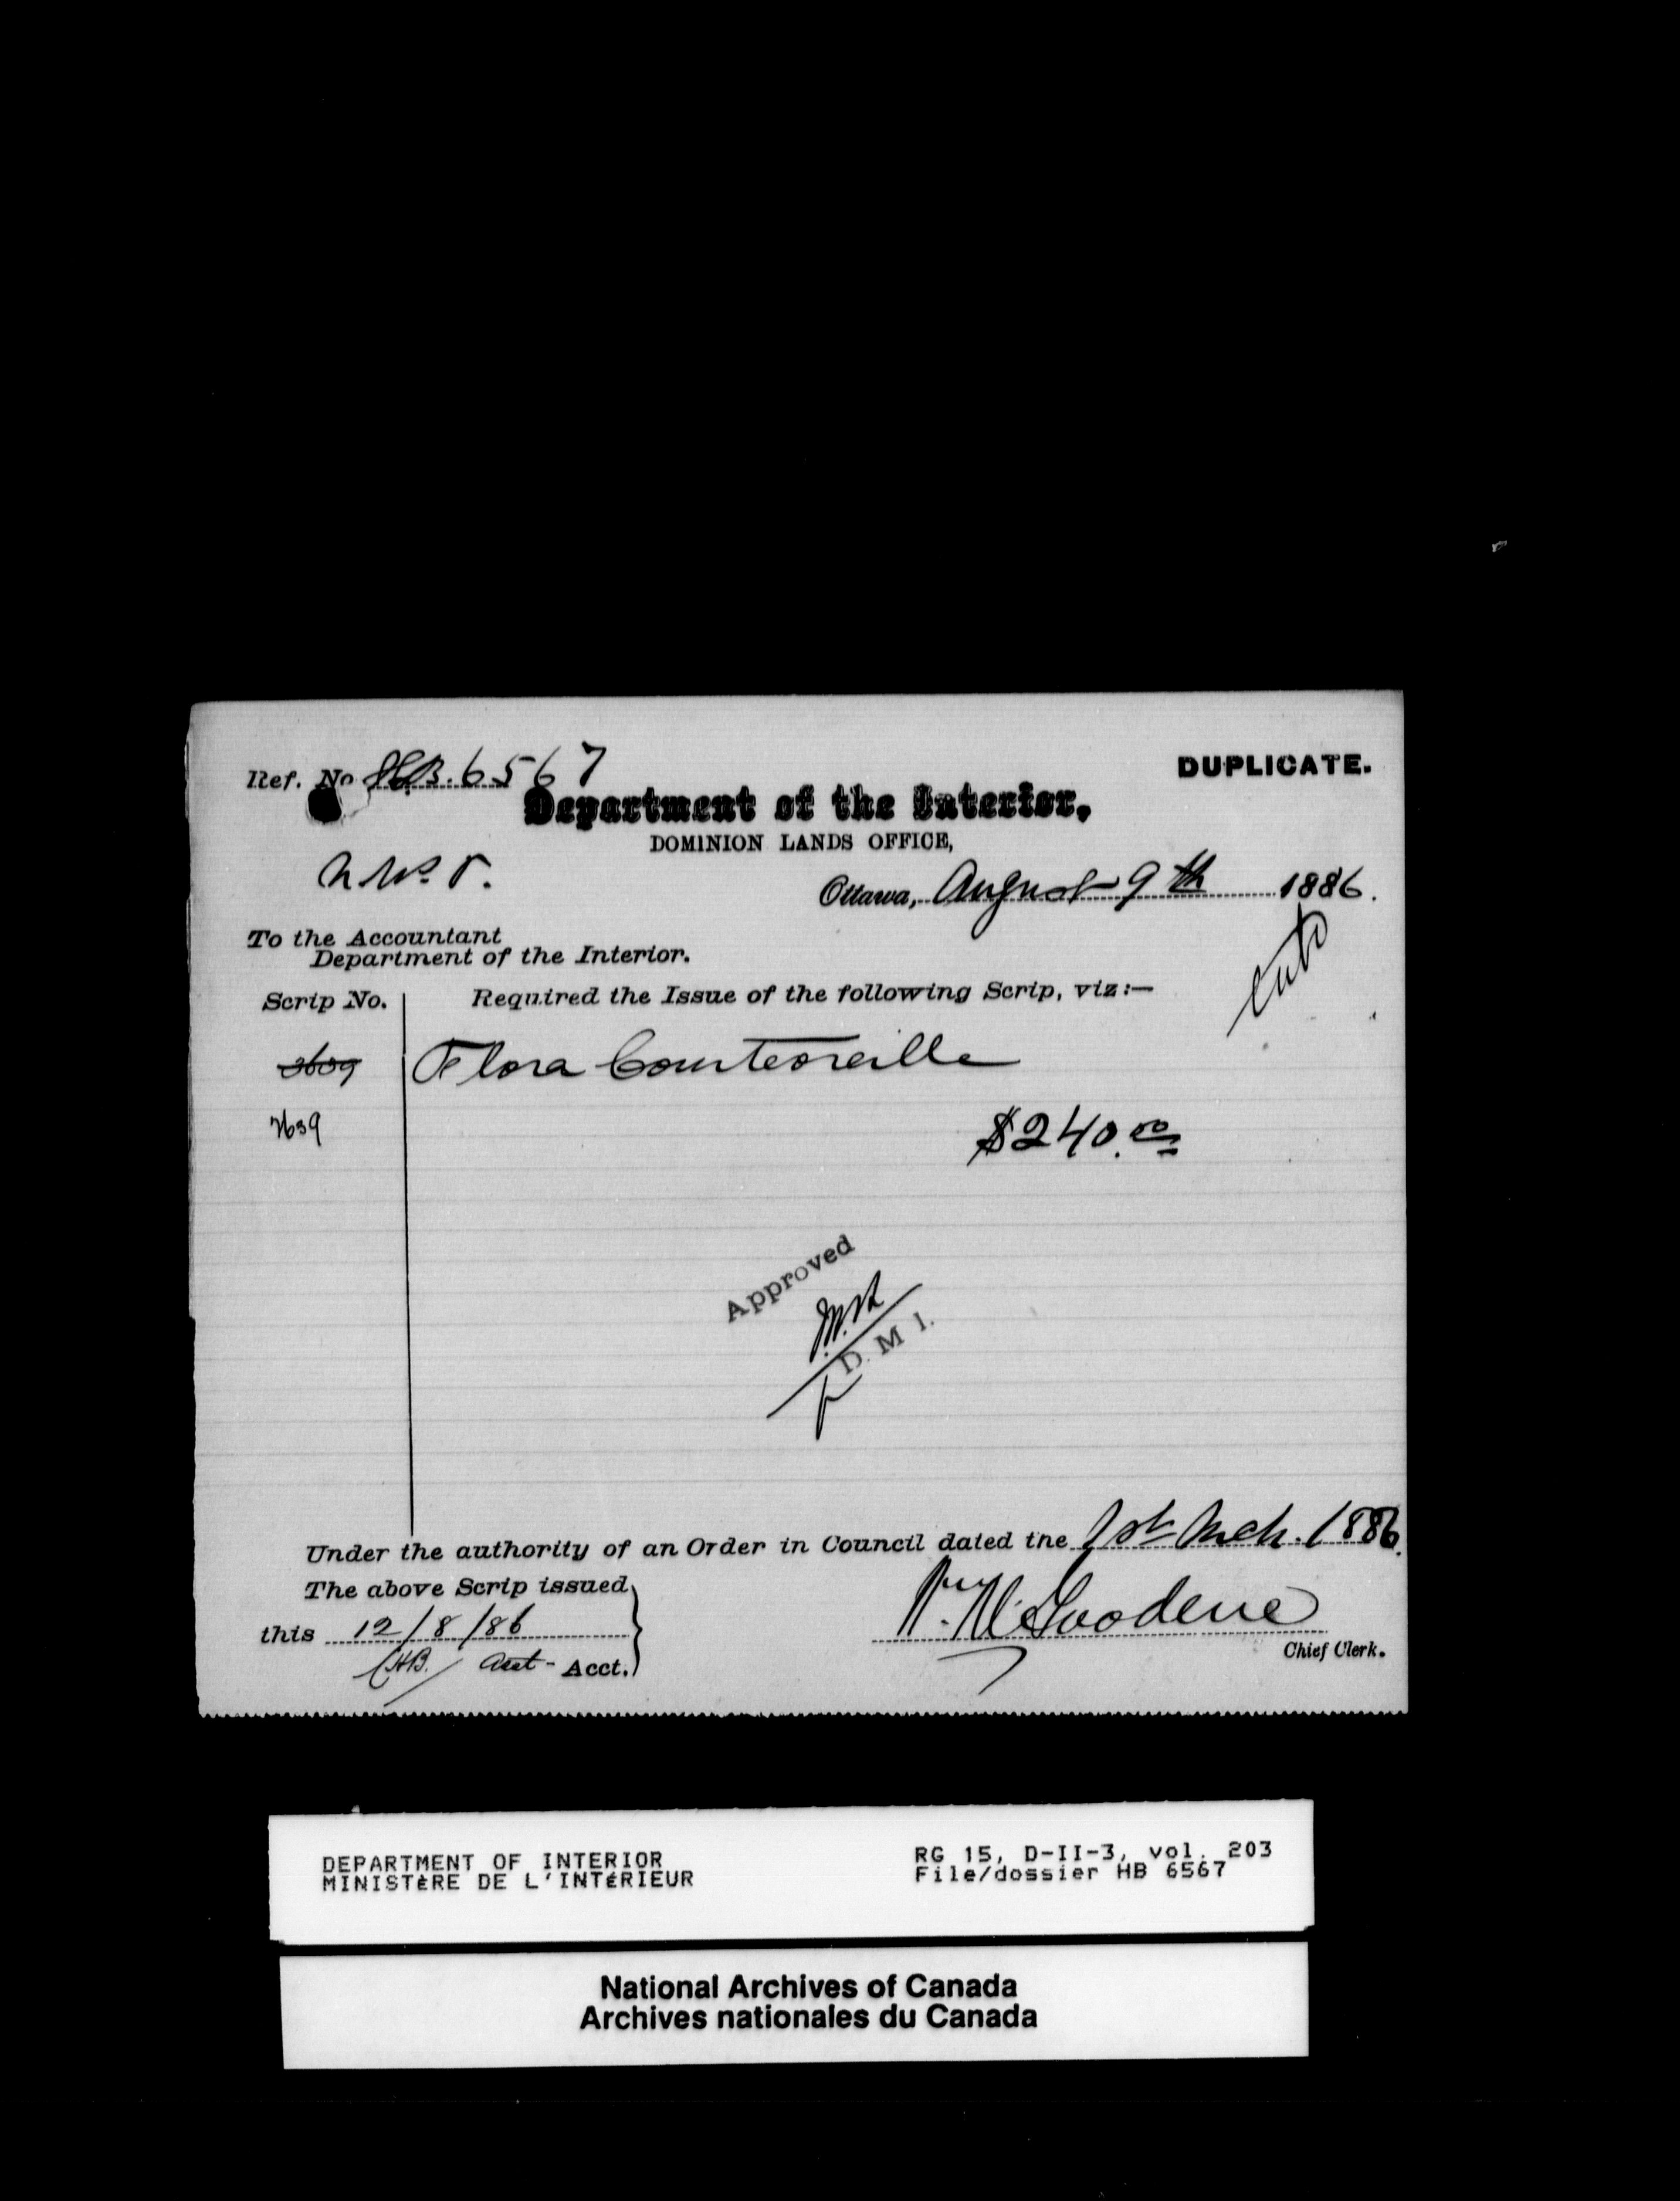 Ref. No H.B. 6567
DUPLICATE.
Department of the Interior,
DOMINION LANDS OFFICE,
N.W.T.
Ottawa, August 9th 1886.
To the Accountant
Department of the Interior.
Scrip No.
Required the Issue of the following Scrip, viz:—
3639
Flora Courteoreille
2639
$240.00
Approved
D. M I.
Under the authority of an Order in Council dated the 1st Mch. 1886.
The above Scrip issued
this 12/8/86
Acct.
Chief Clerk.
DEPARTMENT OF INTERIOR
MINISTÈRE DE L'INTÉRIEUR
RG 15, D-II-3, vol. 203
File/dossier HB 6567
National Archives of Canada
Archives nationales du Canada